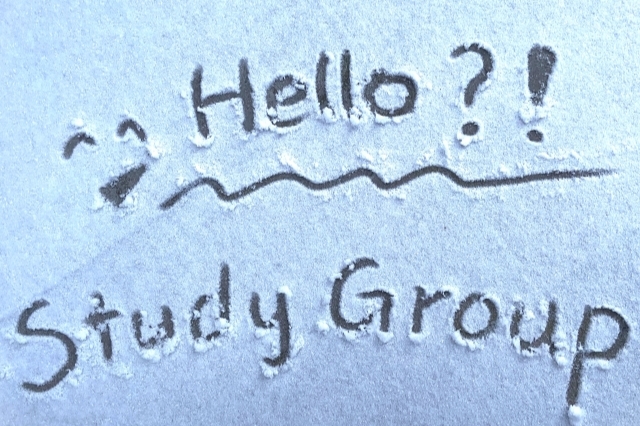 Hello?!
Study Group